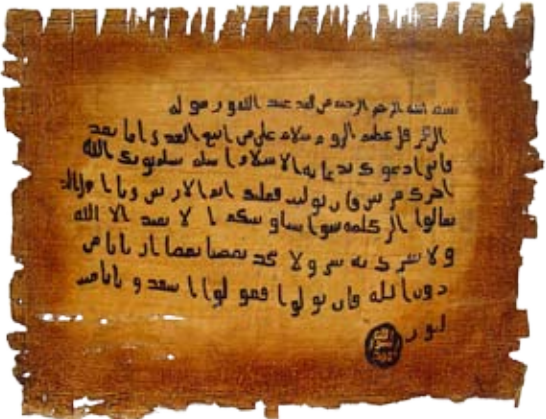 بسم الله الرحمن الرحيم من محمد عبد الله و رسوله
الى هرقل عظيم الروم سلام على من اتبع الهدى اما بعد
فانى ادعوك بدعاية الاسلام اسلم تسلم يوتك الله
اجرك مرتين فان توليت فعليك اثم الاريسين ويا اهل الك
تعالوا الى كلمة سوا بيننا وبينكم ا لا نعبد الا الله
ولا نشرك به شيئا ولا يتخذ بعضنا بعضا اربابا من
دون الله فان تولوا فقولوا اشهدو بانا مس
لمون
الله
رسول
محمد